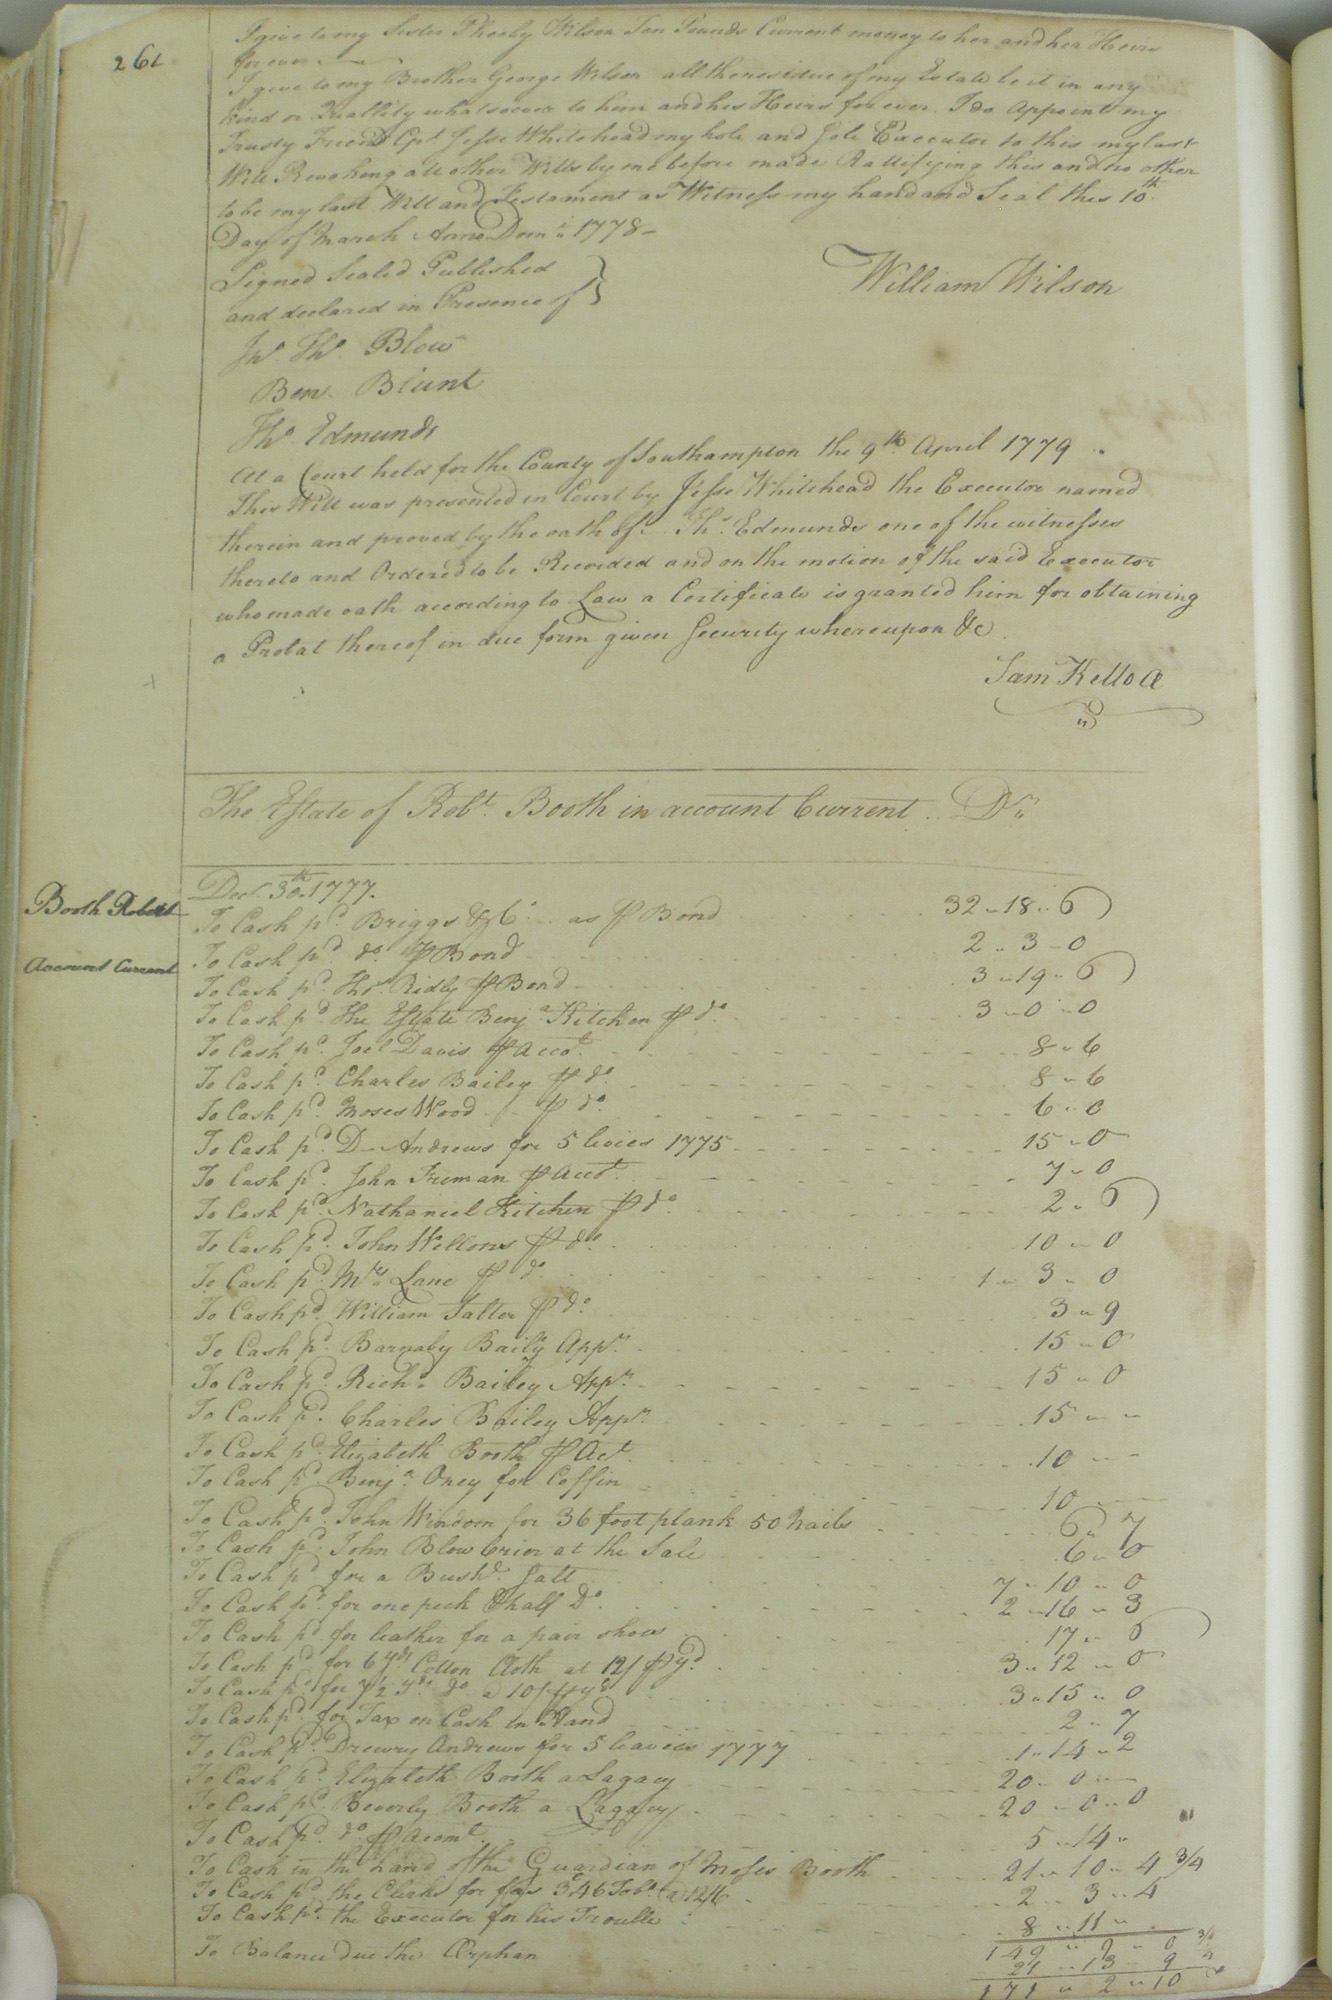 262
I give to my Sister Pheeby Wilson Ten Pounds Current money to her and her Heirs
forever
I give to my Brother George Wilson all the residue of my Estate be it in any
kind or Quallity whatsoever to him and his Heirs forever. I do Appoint my
Trusty Friend Cpt. Jesse Whitehead my hole and Sole Executor to this my last
Will Revokeng all other Wills by me before made Rattifying this and no other
to be my last Will and Testament as Witness my hand and Seal this 10th
Day of March Anno Dom: 1778-
Signed Sealed Published
and declared in Presence of
William Wilson
Jno. Ths. Blow
Benj. Blunt
Thos. Edmunds
At a Court held for the County of Southampton the 9th. April 1779
This Will was presented in Court by Jesse Whitehead the Executor named
therein and proved by the oath of Ths. Edmunds one of the witnesses
thereto and Ordered to be Recorded and on the motion of the said Executor
who made oath according to Law a Certificate is granted him for obtaining
a Probat thereof in due form given Security whereupon &c
Sam Kello
The Estate of Robt. Booth in account Current Dr.
Booth Robert
Account Current
Decr. 30th. 1777.
To Cash pd. Briggs & Co. as ⅌ Bond 32 " 18 " 6
To Cash pd. do. ⅌ Bond 2 " 3 " 0
To Cash pd. Thos. Ridly ⅌ Bond 3 " 19 " 6
To Cash pd. the Estate Benja. Kitchen ⅌ do 3 " 0 " 0
To Cash pd. Joel Davis ⅌ Accot. 8 " 6
To Cash pd. Charles Bailey ⅌ do. 8 " 6
To Cash pd. Moses Wood ⅌ do. 6 " 0
To Cash pd. D- Andrews for 5 levies 1775 15 " 0
To Cash pd. John Freeman ⅌ Accot. 7 " 0
To Cash pd. Nathaniel Kitchen ⅌ do. 2 " 6
To Cash pd. John Wellons ⅌ do. 10 " 0
To Cash pd. Mrs. Lane ⅌ do. 1 " 3 " 0
To Cash pd. William Salter ⅌ do. 3 " 9
To Cash pd. Barnaby Baily Appr. 15 " 0
To Cash pd. Richd. Bailey Appr. 15 " 0
To Cash pd. Charles Bailey Appr. 15 " "
To Cash pd. Elizabeth Booth ⅌ Act. 10 " "
To Cash pd. Benja. Oney for Coffin
To Cash pd. John Windom for 36 foot plank 50 Nails 10
To Cash pd. John Blow Crier at the Sale 6 " 7
To Cash pd for a Bushl. Salt 6 " 0
To Cash pd. for one peck & half Do. 7 " 10 " 0
To Cash pd for leather for a pair shoes 2 " 16 " 3
To Cash pd for 6 Yds Cotton Cloth at 12/ ⅌ Yd. 17 " 6
To Cash pd. for 7½ Yds. do a 10/ ⅌ yd 3 " 12 " 0
To Cash pd. for Tax on Cash in Hand 3 " 15 " 0
To Cash pd. Drewry Andrews for 5 leavies 1777 2 " 7
To Cash pd. Elizabeth Booth a Lagacy 1 " 14 " 2
To Cash pd. Beverly Booth a Lagacy 20 " 0 "
To Cash pd. do. ⅌ Acomt. 20 " 0 " 0
To Cash in the hand of the Guardian of Moses Booth 5 " 14 "
To Cash pd. the Clerks for fees 346 Tobo. a 12/6 21 " 10 " 4 3/4
To Cash pd. the Executor for his Trouble 2 " 3 " 4
8 " 11 "
To Balance due the Orphan 149 " 9 " 0 3/4
21 " 13 " 9
171 " 2 " 10